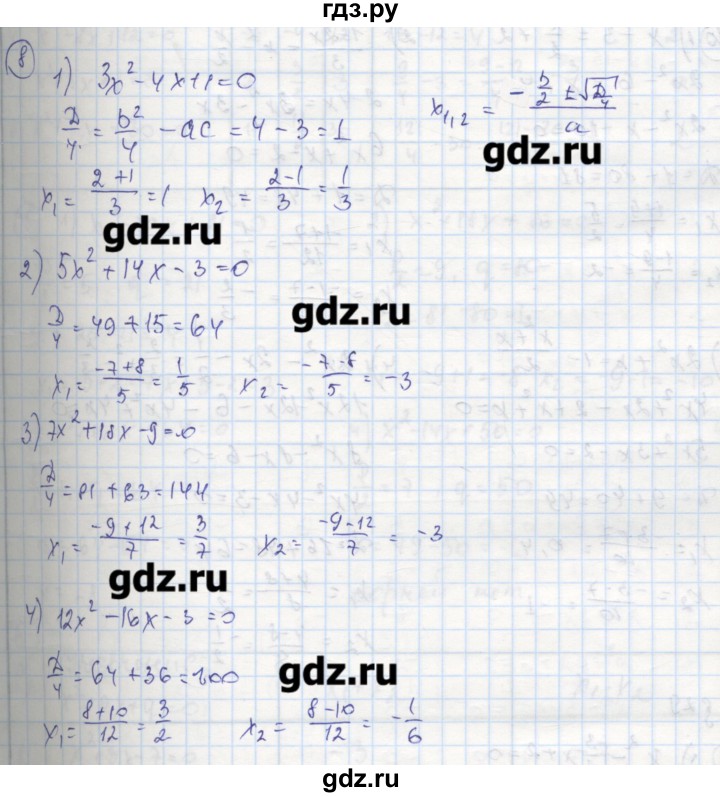 гдз.ру
8
1) 3x² - 4x + 1 = 0
D/4 = b²/4 - ac = 4 - 3 = 1
x₁,₂ = (-b/2 ± √(D/4))/a
gdz.ru
x₁ = (2+1)/3 = 1 x₂ = (2-1)/3 = 1/3
gdz.ru
2) 5x² + 14x - 3 = 0
gdz.ru
D/4 = 49 + 15 = 64
x₁ = (-7+8)/5 = 1/5 x₂ = (-7-8)/5 = -3
3) 7x² + 18x - 9 = 0
D/4 = 81 + 63 = 144
x₁ = (-9+12)/7 = 3/7 x₂ = (-9-12)/7 = -3
gdz.ru
4) 12x² - 16x - 3 = 0
D/4 = 64 + 36 = 100
gdz.ru
x₁ = (8+10)/12 = 3/2 x₂ = (8-10)/12 = -1/6
gdz.ru